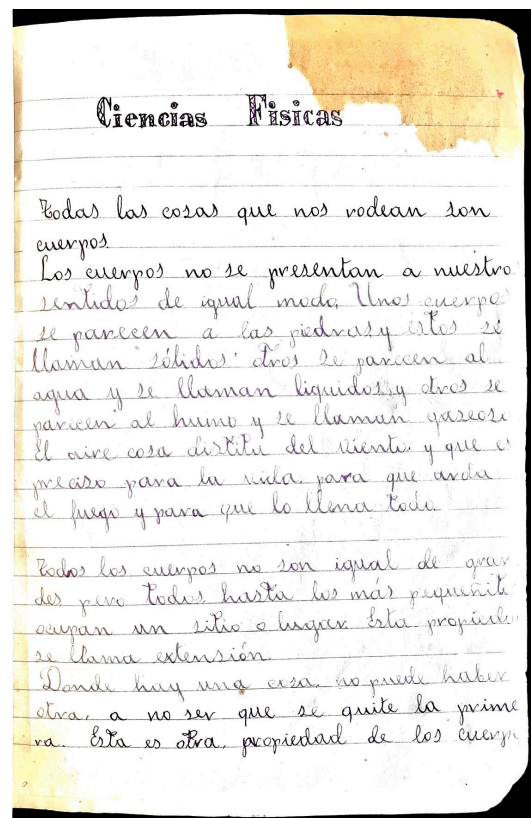 Ciencias Fisicas
Todas las cosas que nos rodean son
cuerpos
Los cuerpos no se presentan a nuestro
sentidos de igual modo. Unos cuerpo
se parecen a las piedras y estos se
llaman sólidos: otros se parecen al
agua y se llaman liquidos, y otros se
parecen al humo y se llaman gaseoso
El aire cosa del viento. y que e
preciso para la vida, para que arda
el fuego y para que lo llena todo.
Todos los cuerpos no son igual de gran
des pero todos hasta los más pequeñit
ocupan un sitio o lugar. Esta propieda
se llama extensión.
Donde hay una cosa, no puede haber
otra, a no ser que se quite la prime
ra. Esta es otra, propiedad de los cuerpo